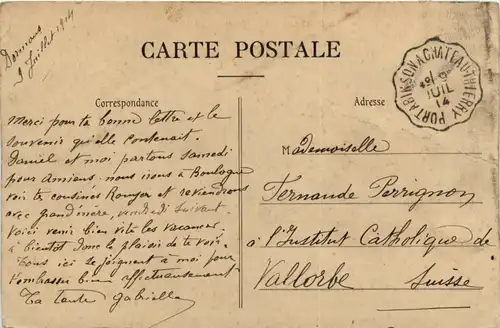 Dormans
9 Juillet 1914
CARTE POSTALE
Correspondance
Adresse
PORT A BINSON A CHATEAU-THIERRY
9
JUIL
14
Merci pour ta bonne lettre et le
souvenir qu'elle contenait.
Daniel et moi partons samedi
pour Amiens, nous irons à Boulogne
voir tes cousines Rouyer et reviendrons
avec grand'mère, vendredi suivant.
Voici venir bien vite les vacances,
à bientôt donc le plaisir de te voir.
Tous ici se joignent à moi pour
t'embrasser bien affectueusement
Ta tante Gabrielle
Mademoiselle
Fernande Perrignon
à l'Institut Catholique de
Vallorbe Suisse